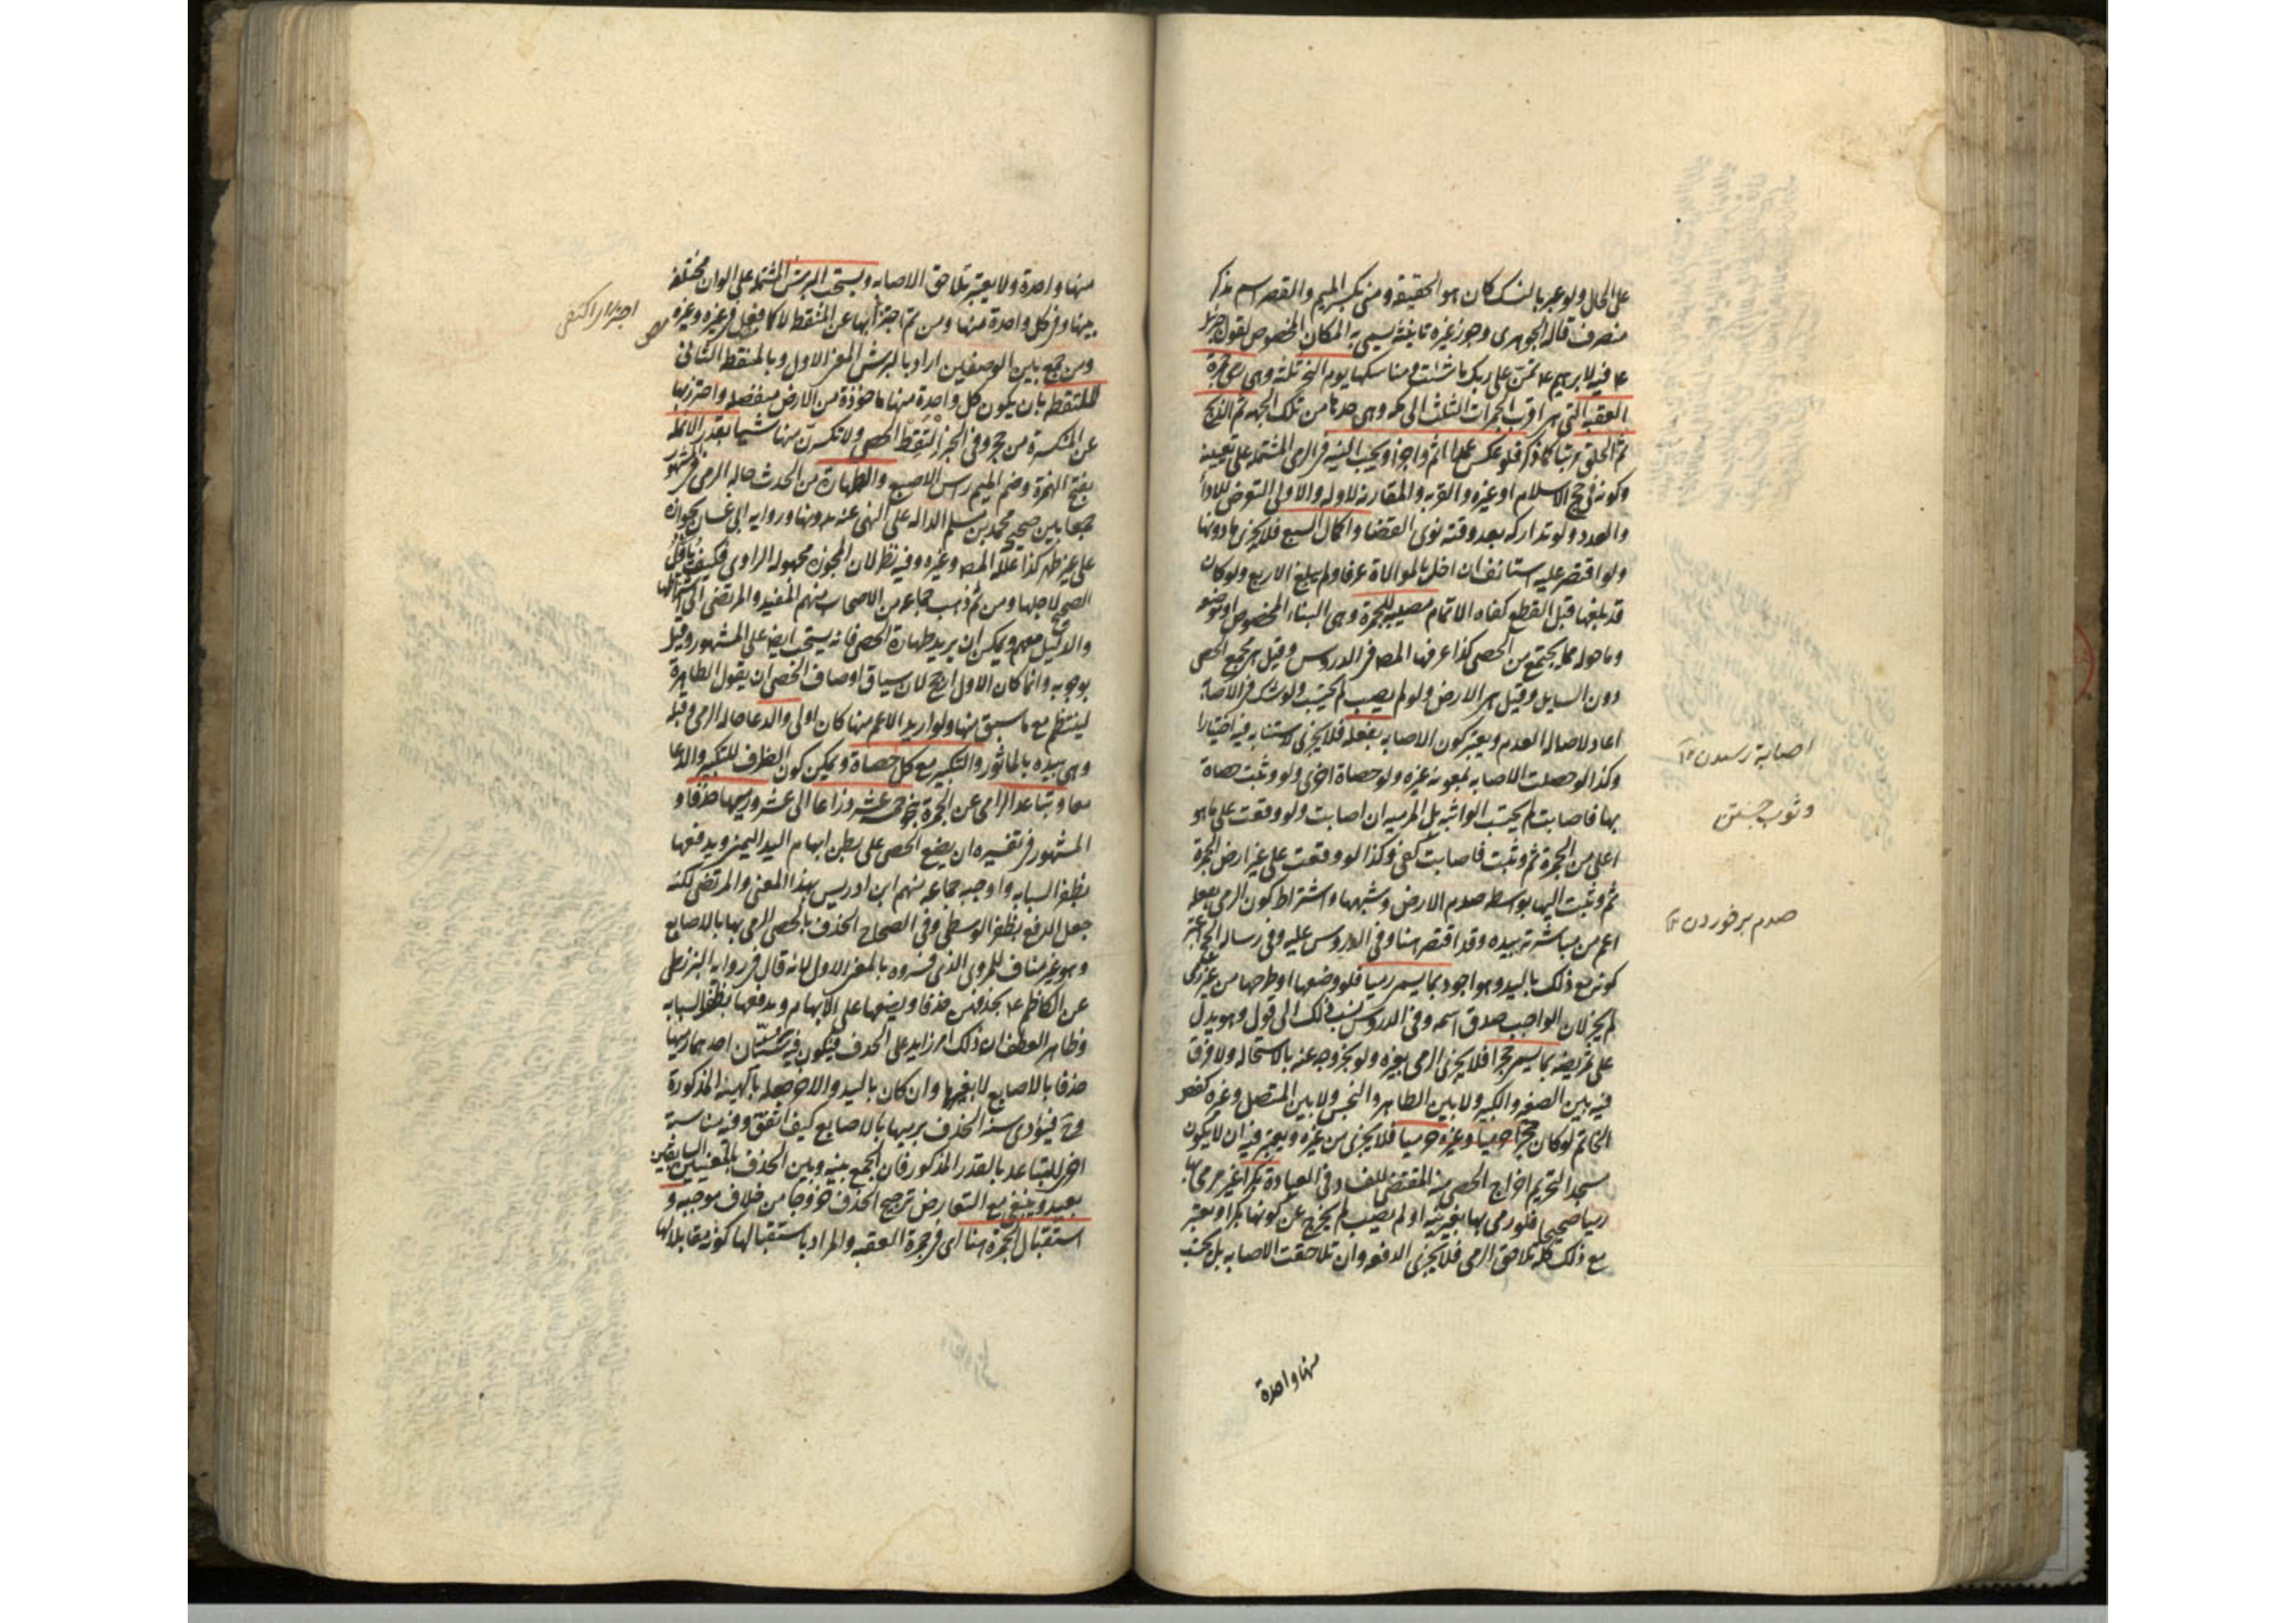 على الحلل ولو عبر بالنسك كان هو الحقيقة ومنى بكسر الميم والقصر اسم مذكر
منصرف قاله الجوهري وجوز غيره تانيثه سمي به المكان المخصوص لقول جبرئيل
ع فيه لابرهيم ع تمن على ربك ما شئت ومناسكها يوم النحر ثلثة وهي رمي جمرة
العقبة التي هي اقرب الجمرات الثلث الى مكة وهي حدها من تلك الجهة ثم الذبح
ثم الحلق مرتبا كما ذكر فلو عكس عمدا اثم واجزا ويجب النية في الرمي المشتملة على تعيينه
وكونه في حج الاسلام او غيره والقربة والمقارنة لاوله والاولى التعرض للاداء
والعدد ولو تداركه بعد وقته نوى القضا واكمال السبع فلا يجزي ما دونها
ولو اقتصر عليه استانف ان اخل بالموالاة عرفا ولم يبلغ الاربع ولو كان
قد بلغها قبل القطع كفاه الاتمام مصيبة للجمرة وهي البناء المخصوص او موضعه
وما حوله مما يجتمع من الحصى كذا عرفها المص في الدروس وقيل هي مجمع الحصى
دون السايل وقيل هي الارض ولو لم يصب لم يحتسب ولو شك في الاصابة
اعاد لاصالة العدم ويعتبر كون الاصابه بفعله فلا يجزي الاستنابه فيه اختيارا
وكذا لو حصلت الاصابه بمعونة غيره ولو حصاة اخرى ولو وثبت حصاة
بها فاصابت لم يحتسب الواثبه بل المرميه ان اصابت ولو وقعت على ما هو
اعلى من الجمرة ثم وثبت فاصابت كفى وكذا لو وقعت على غير ارض الجمرة
ثم وثبت اليها بواسطه صدم الارض وشبهها واشتراط كون الرمي بفعله
اعم من مباشرته بيده وقد اقتصر هنا وفي الدروس عليه وفي رسالة الحج اعتبر
كونه مع ذلك باليد وهو اجود بما يسمى رميا فلو وضعها او طرحها من غير رمي
لم يجز لان الواجب صدق اسمه وفي الدروس نسب ذلك الى قول وهو يدل
على تمريضه بما يسمى حجرا فلا يجزي الرمي بغيره ولو بخروجه عنه بالاستحالة ولا فرق
فيه بين الصغير والكبير ولا بين الطاهر والنجس ولا بين المتصل وغيره كفص
الخاتم لو كان حجرا حرميا وغيره حرميا فلا يجزي من غيره ويعتبر فيه ان لا يكون
مسجدا لتحريم اخراج الحصى منه المقتضي للفساد في العبادة بكرا غير مرمي بها
رميا صحيحا فلو رمي بها بغير نية او لم يصب لم يخرج عن كونها بكرا ويعتبر
مع ذلك كله تلاحق الرمي فلا يجزي الدفعه وان تلاحقت الاصابه بل يحتسب
منها واحدة
اصابة رسيدن
وثوب جستن
صدم بر خوردن
منها واحدة ولا يعتبر تلاحق الاصابه ويستحب البرش المشتملة على الوان مختلفه
بينها وفي كل واحدة منها ومن ثم اجتزأ بها عن المنقطة لا كما فعل في غيره وغيره
ومن جمع بين الوصفين اراد بالبرش المعنى الاول وبالمنقطه الثاني
الملتقطه بان يكون كل واحدة منها ماخوذة من الارض منفصلة واحترز بها
عن المكسرة من حجر وفي الخبر التقط الحصى ولا تكسرن منها شيئا بقدر الانملة
بفتح الهمزة وضم الميم راس الاصبع والطهارة من الحدث حالة الرمي في المشهور
جمعا بين صحيح محمد بن مسلم الداله على النهي عنه بدونها ورواية ابي غسان بجوازه
على غير طهر كذا علله المص وغيره وفيه نظر لان المجوزة مجهولة الراوي فكيف يأول
الصحيح لاجلها ومن ثم ذهب جماعة من الاصحاب منهم المفيد والمرتضى الى اشتراطها
والدليل معهم ويمكن ان يريد طهارة الحصى فانه يستحب ايضا على المشهور وقيل
بوجوبه وانما كان الاول ارجح لان سياق اوصاف الحصى ان يقول الطاهرة
لينتظم مع ما سبق منها ولو اريد الاعم منها كان اولى والدعا حالة الرمي وقبله
وهي بيده بالماثور والتكبير مع كل حصاة ويمكن كون الظرف للتكبير والدعا
معا وتباعد الرامي عن الجمرة نحو خمسة عشر ذراعا الى عشر ورميها خذفا و
المشهور في تفسيره ان يضع الحصى على بطن ابهام اليد اليمنى ويدفعها
بظفر السبابه واوجبه جماعة منهم ابن ادريس بهذا المعنى والمرتضى لكنه
جعل الدفع بظفر الوسطى وفي الصحاح الخذف بالحصى الرمي بها بالاصابع
وهو غير مناف للمروي الذي فسروه بالمعنى الاول لانه قال في رواية البزنطي
عن الكاظم ع تخذفهن خذفا ويضعها على الابهام ويدفعها بظفر السبابه
وظاهر العطف ان ذلك امر زايد على الخذف فيكون فيه سنتان احدهما رميها
خذفا بالاصابع لا بغيرها وان كان باليد والاخر جعله بالهيئة المذكورة
وح فيؤدى سنة الخذف برميها بالاصابع كيف اتفق وفيه مناسبة
اخرى للتباعد بالقدر المذكور فان الجمع بينه وبين الخذف بالمعنيين السابقين
بعيد وينبغي مع التعارض ترجيح الخذف خروجا من خلاف موجبه و
استقبال الجمرة هنا اي في جمرة العقبه والمراد باستقبالها كونه مقابلا لها